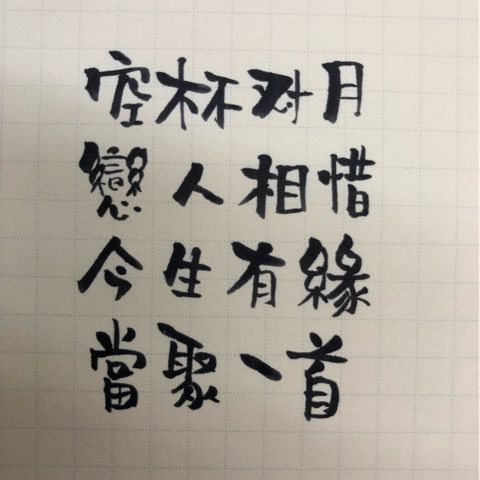 空杯对月
戀人相惜
今生有緣
當聚一首